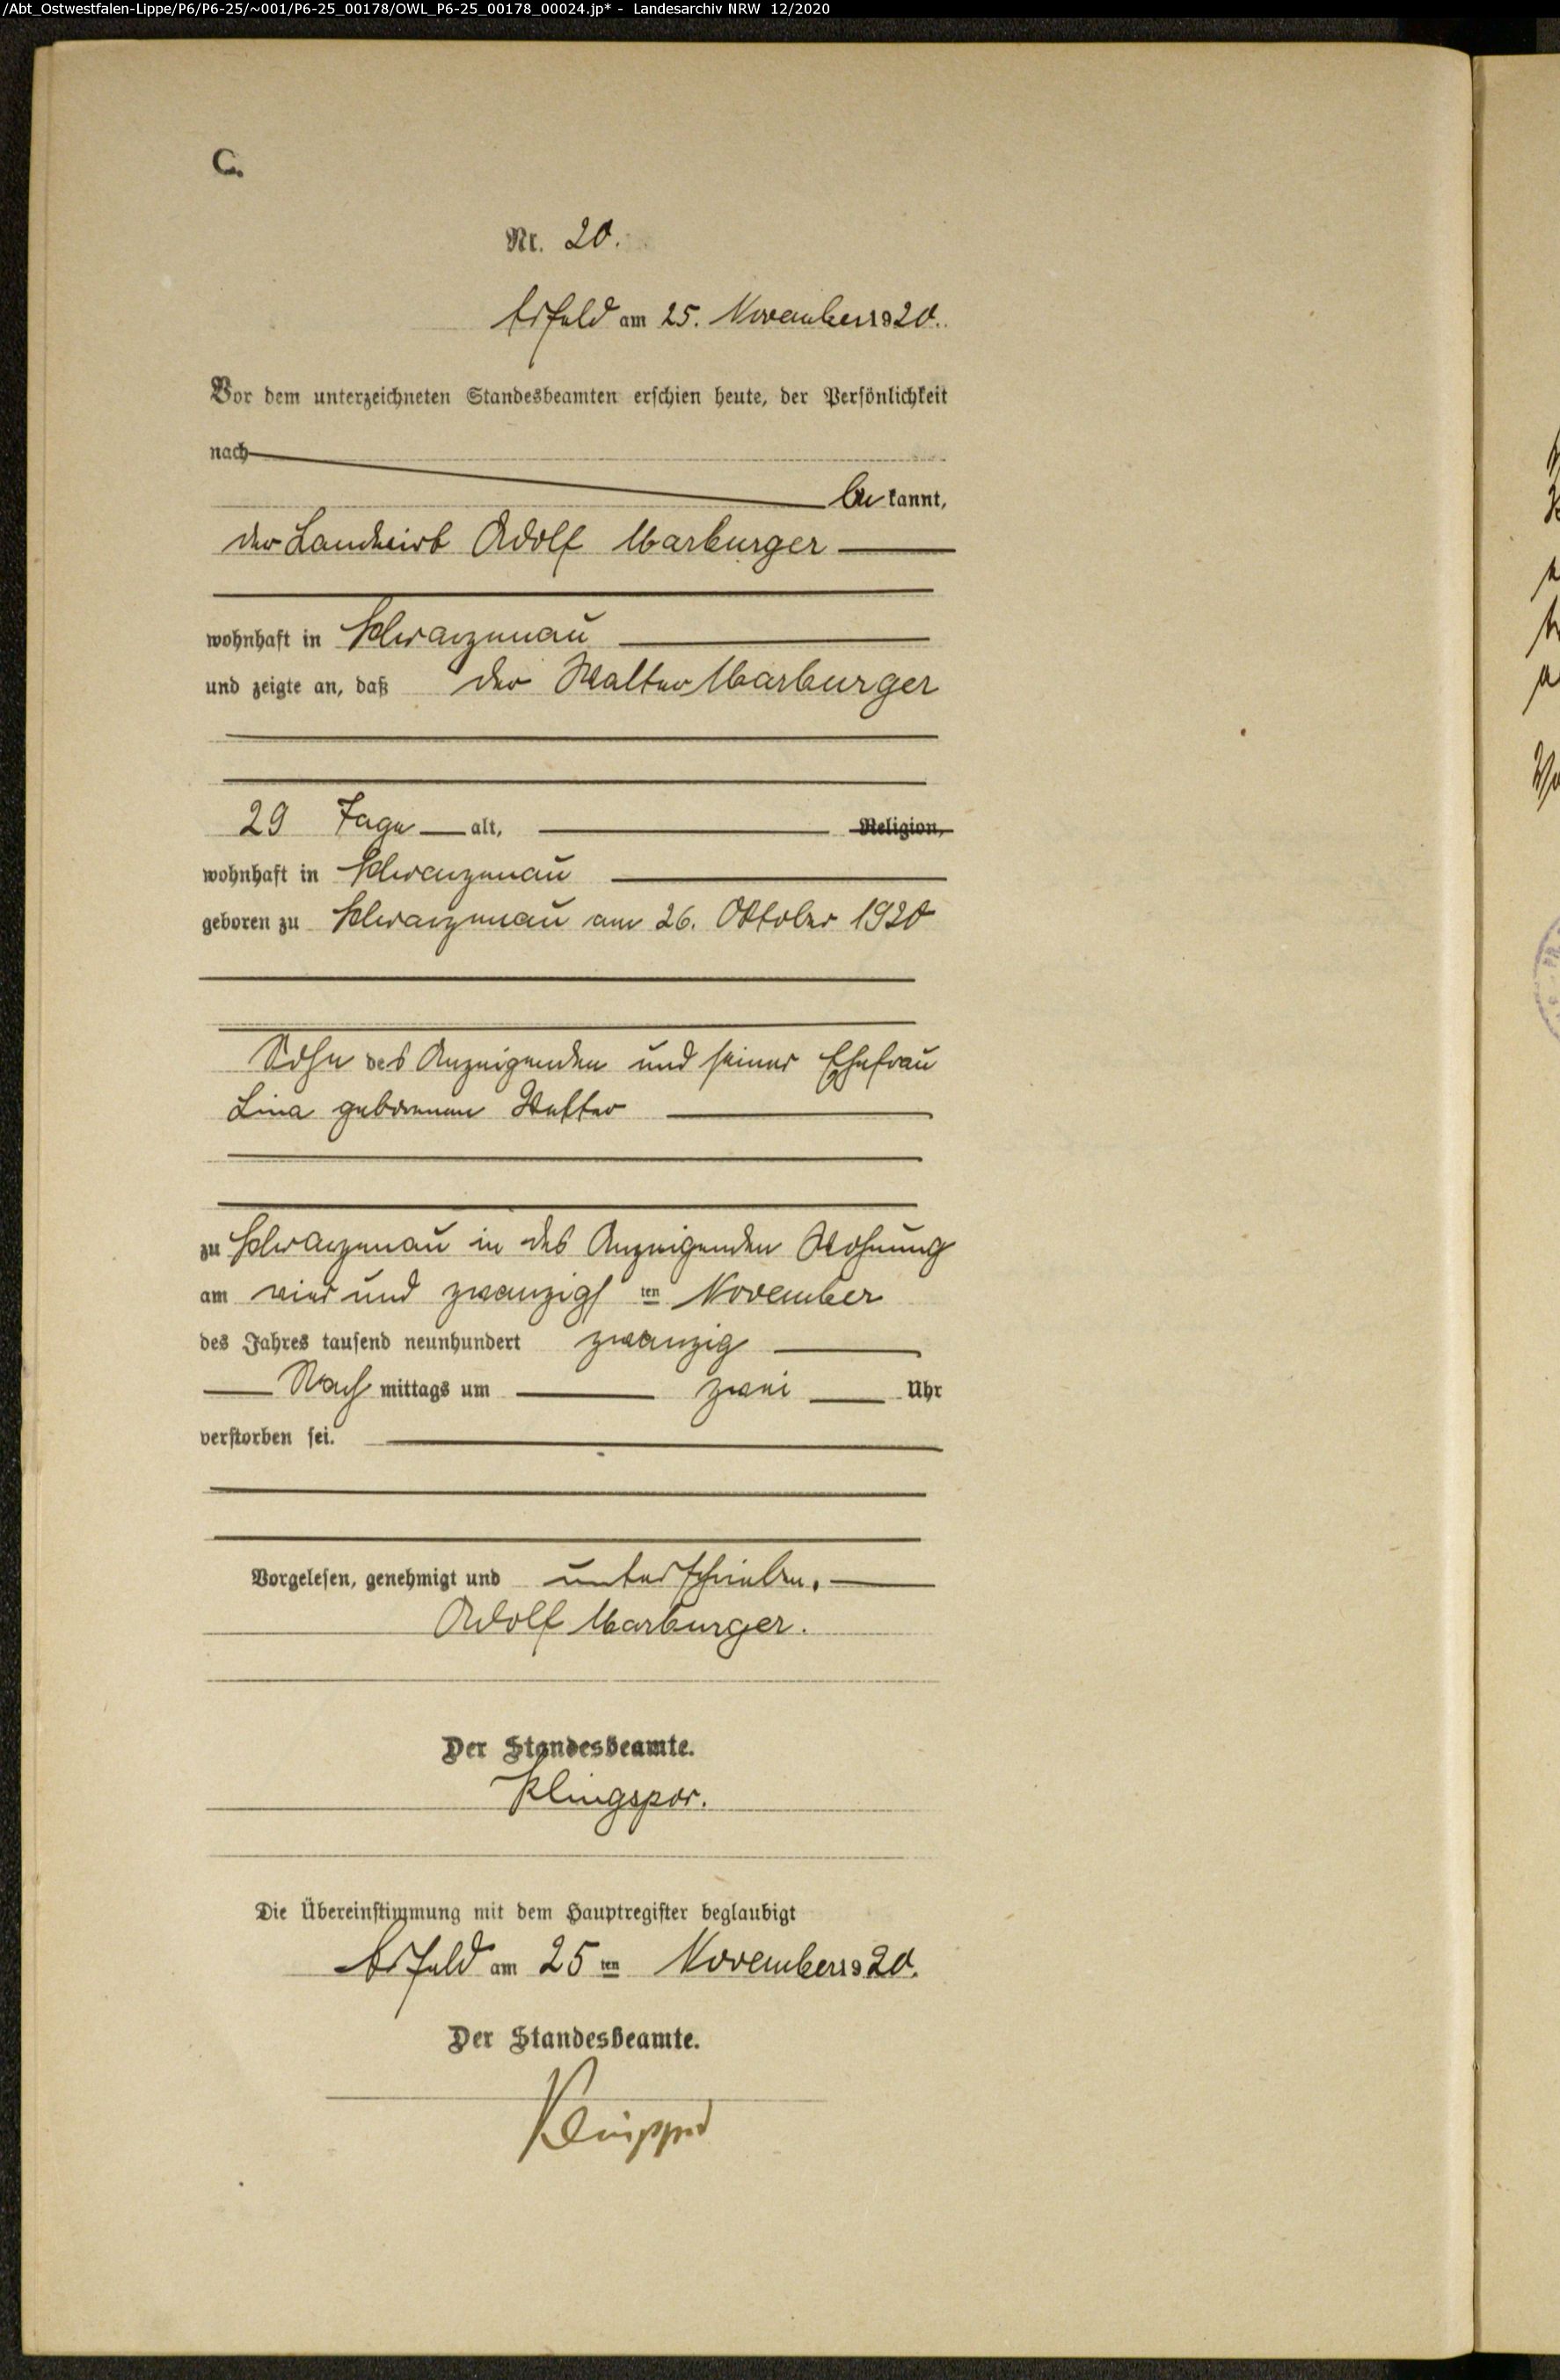 /Abt_Ostwestfalen-Lippe/P6/P6-25/~001/P6-25_00178/OWL_P6-25_00178_00024.jp* - Landesarchiv NRW 12/2020
C.
Nr. 20.
Arfeld am 25. November 1920.
Vor dem unterzeichneten Standesbeamten erschien heute, der Persönlichkeit
nach
be kannt,
der Landwirt Adolf Marburger
wohnhaft in Schwarzenau
und zeigte an, daß der Walter Marburger
29 Tage alt, Religion,
wohnhaft in Schwarzenau
geboren zu Schwarzenau am 26. Oktober 1920
Sohn des Anzeigenden und seiner Ehefrau
Lina geborenen
zu Schwarzenau in des Anzeigenden Wohnung
am vier und zwanzigs ten November
des Jahres tausend neunhundert zwanzig
Nach mittags um zwei Uhr
verstorben sei.
Vorgelesen, genehmigt und unterschrieben.
Adolf Marburger.
Der Standesbeamte.
Klingspor.
Die Übereinstimmung mit dem Hauptregister beglaubigt
Arfeld am 25 ten November 1920.
Der Standesbeamte.